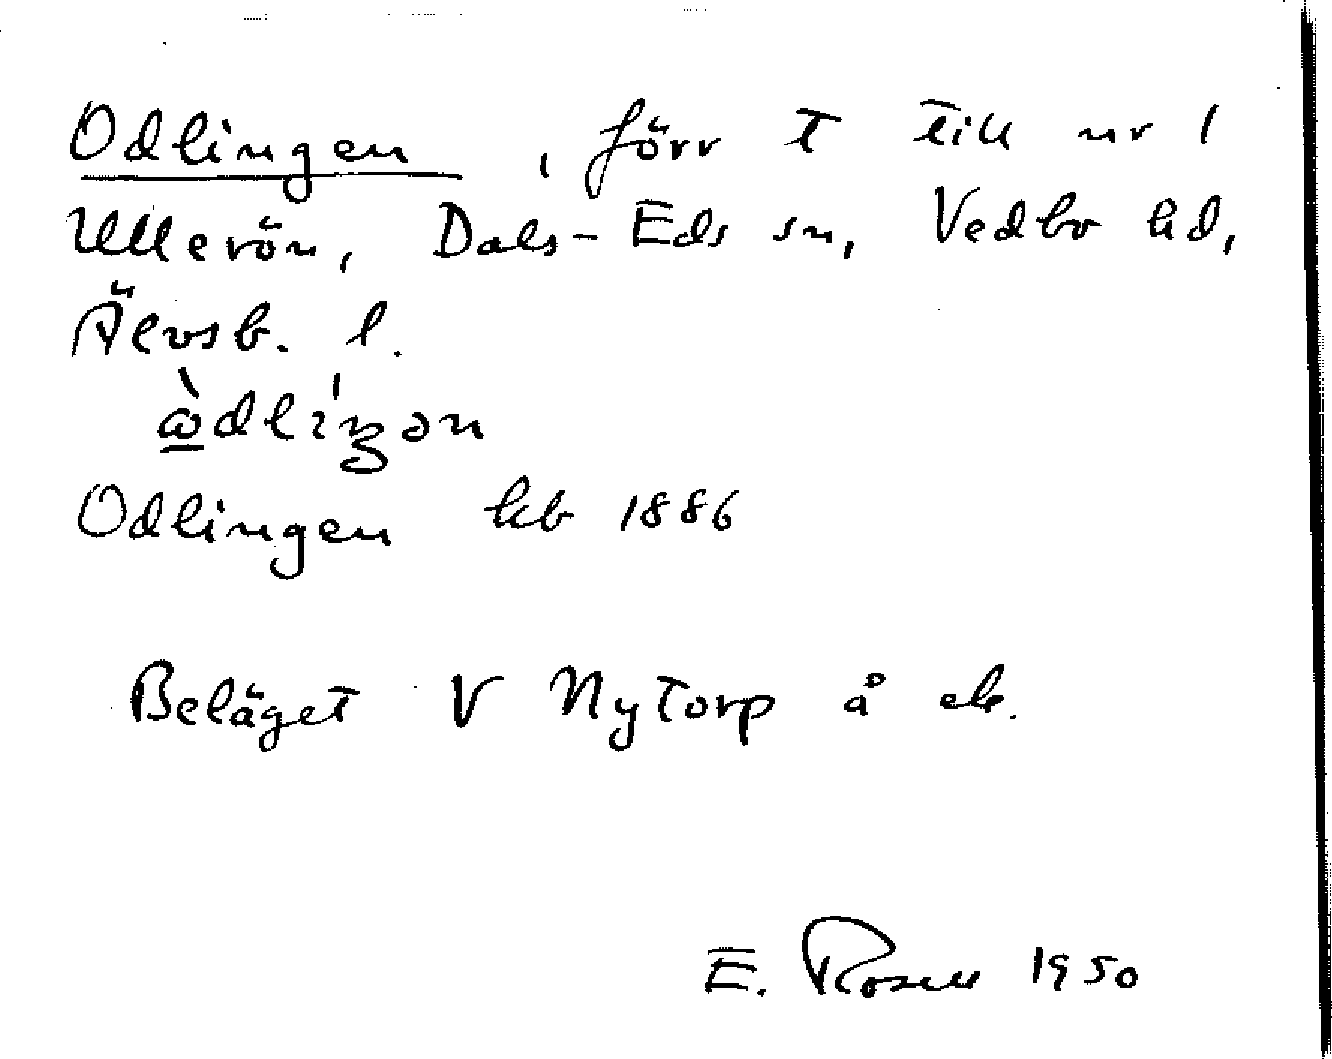 Odlingen, förr t till nr 1
Ullerön, Dals-Eds sn, Vedbo hd,
Älvsb. l.
Odlingen hb 1886
Beläget V Nytorp å ek.
E. Rosell 1950